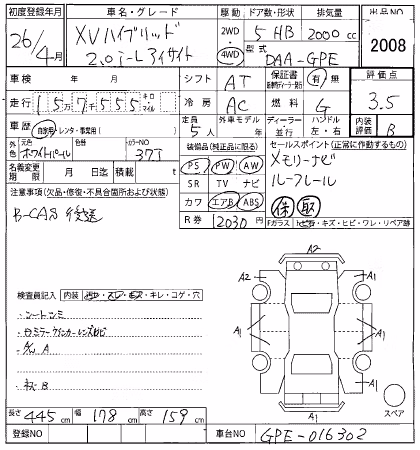 初度登録年月 車名・グレード 駆動 ドア数・形状 排気量 出品NO
26年 4月 XVハイブリッド 2WD 5 HB 2000cc 2008
2.0i-L アイサイト 4WD 型式 DAA-GPE
車検 年 月 シフト AT 保証書 有 無 評価点
走行 157555 キロ マイル 冷房 AC 燃料 G 3.5
車歴 自家用・レンタ・事業用( ) 定員 5人 外車モデル 年 ディーラー 並行 ハンドル 左・右 内装評価 B
外色 元色 ホワイトパール 色替 カラーNO 37J 装備品(純正品に限る) セールスポイント(正常に動作するもの)
名義変更期限 月 日迄 積載 kg PS PW AW メモリーナビ
SR TV ナビ ルーフレール
注意事項(欠品・修復・不具合箇所および状態) カワ エアB ABS 保 取
B-CAS後送 R券 12030円 Fガラス トビ石・キズ・ヒビ・ワレ・リペア跡
検査員記入 内装
キレ・コゲ・穴
A2
A2 A1
A1 A1
A1 A1
A1
スペア
長さ 445cm 幅 178cm 高さ 159cm
登録NO 車台NO GPE-016302